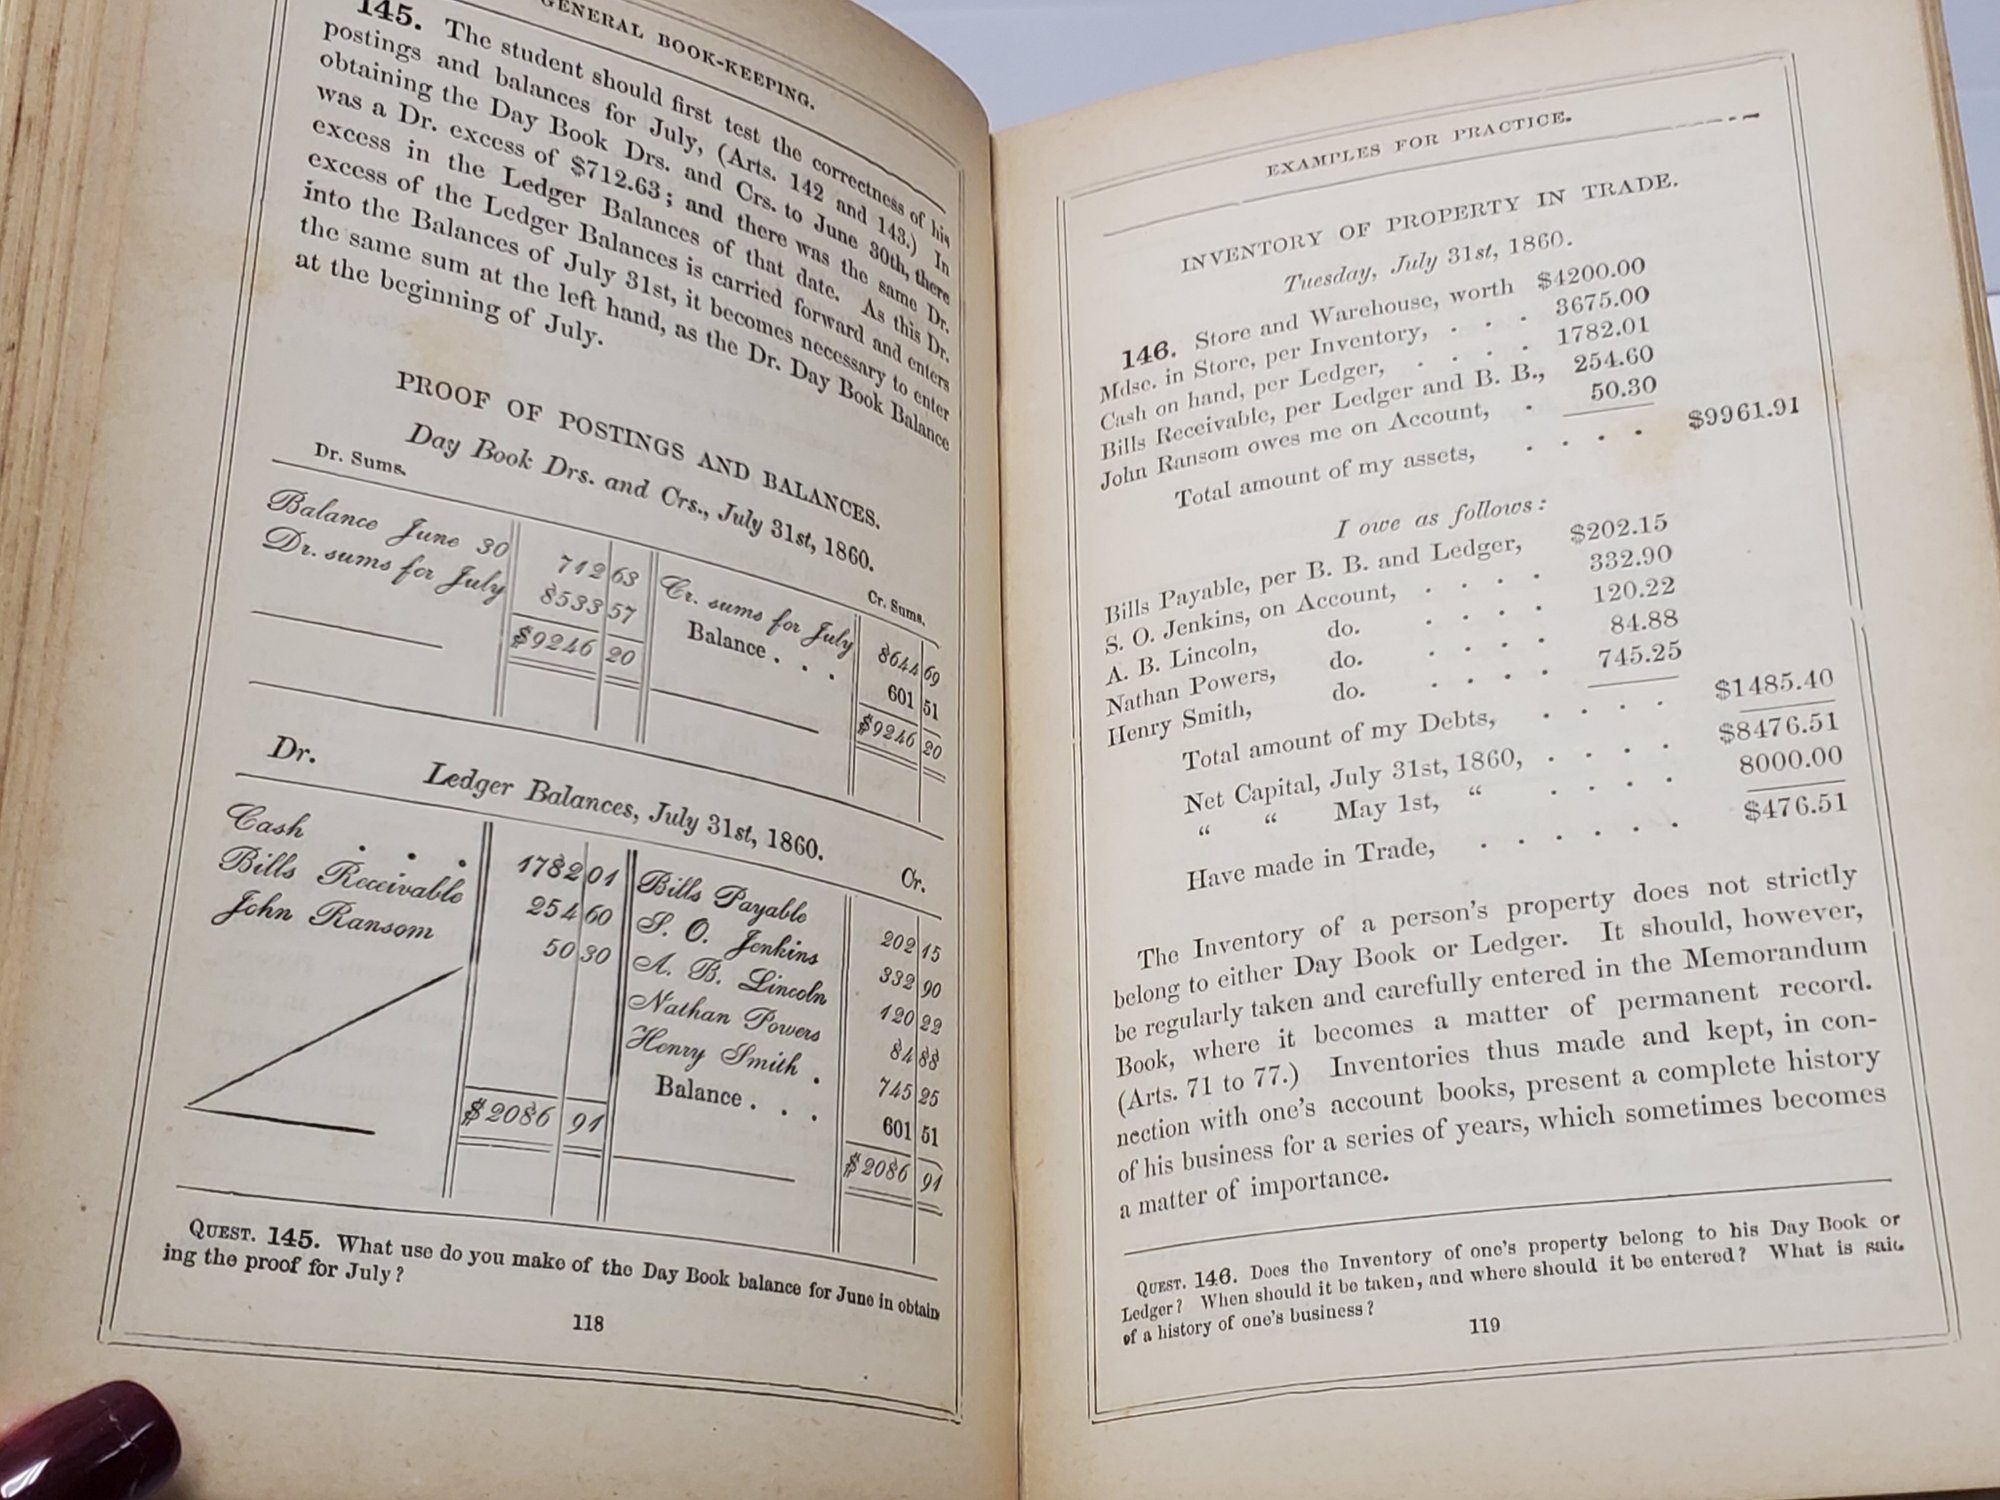 GENERAL BOOK-KEEPING.
145. The student should first test the correctness of his
postings and balances for July, (Arts. 142 and 143.) In
obtaining the Day Book Drs. and Crs. to June 30th, there
was a Dr. excess of $712.63; and there was the same Dr.
excess in the Ledger Balances of that date. As this Dr.
excess of the Ledger Balances is carried forward and enters
into the Balances of July 31st, it becomes necessary to enter
the same sum at the left hand, as the Dr. Day Book Balance
at the beginning of July.
PROOF OF POSTINGS AND BALANCES.
Day Book Drs. and Crs., July 31st, 1860.
Dr. Sums. Cr. Sums.
Balance June 30 712 63 Cr. sums for July 8644 69
Dr. sums for July 8533 57 Balance . . . 601 51
$9246 20 $9246 20
Dr. Ledger Balances, July 31st, 1860. Cr.
Cash . . . 1782 01 Bills Payable 202 15
Bills Receivable 254 60 S. O. Jenkins 332 90
John Ransom 50 30 A. B. Lincoln 120 22
Nathan Powers 84 88
Henry Smith . 745 25
Balance . . . 601 51
$2086 91 $2086 91
QUEST. 145. What use do you make of the Day Book balance for June in obtain
ing the proof for July?
118
EXAMPLES FOR PRACTICE.
INVENTORY OF PROPERTY IN TRADE.
Tuesday, July 31st, 1860.
146. Store and Warehouse, worth $4200.00
Mdse. in Store, per Inventory, . . . 3675.00
Cash on hand, per Ledger, . . . . 1782.01
Bills Receivable, per Ledger and B. B., 254.60
John Ransom owes me on Account, . 50.30
Total amount of my assets, . . . . $9961.91
I owe as follows:
Bills Payable, per B. B. and Ledger, $202.15
S. O. Jenkins, on Account, . . . . 332.90
A. B. Lincoln, do. . . . . 120.22
Nathan Powers, do. . . . . 84.88
Henry Smith, do. . . . . 745.25
Total amount of my Debts, . . . . $1485.40
Net Capital, July 31st, 1860, . . . . $8476.51
" " May 1st, " . . . . 8000.00
Have made in Trade, . . . . . . $476.51
The Inventory of a person's property does not strictly
belong to either Day Book or Ledger. It should, however,
be regularly taken and carefully entered in the Memorandum
Book, where it becomes a matter of permanent record.
(Arts. 71 to 77.) Inventories thus made and kept, in con-
nection with one's account books, present a complete history
of his business for a series of years, which sometimes becomes
a matter of importance.
QUEST. 146. Does the Inventory of one's property belong to his Day Book or
Ledger? When should it be taken, and where should it be entered? What is said
of a history of one's business?
119